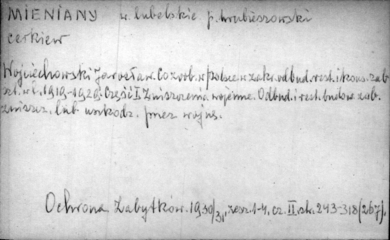 MIENIANY w. lubelskie p. hrubieszowski
cerkiew
Wojciechowski Jarosław. Co zrob. w Polsce w zakr. odbud. rest. i kons. zab.
szt. w l. 1919-1929. Część I. Zniszczenia wojenne. Odbud. i rest. budowe zab.
zniszcz. lub uszkodz. przez wojnę.
Ochrona Zabytków. 1930/31, zesz. 1-4, cz. II str. 243-318 (267).